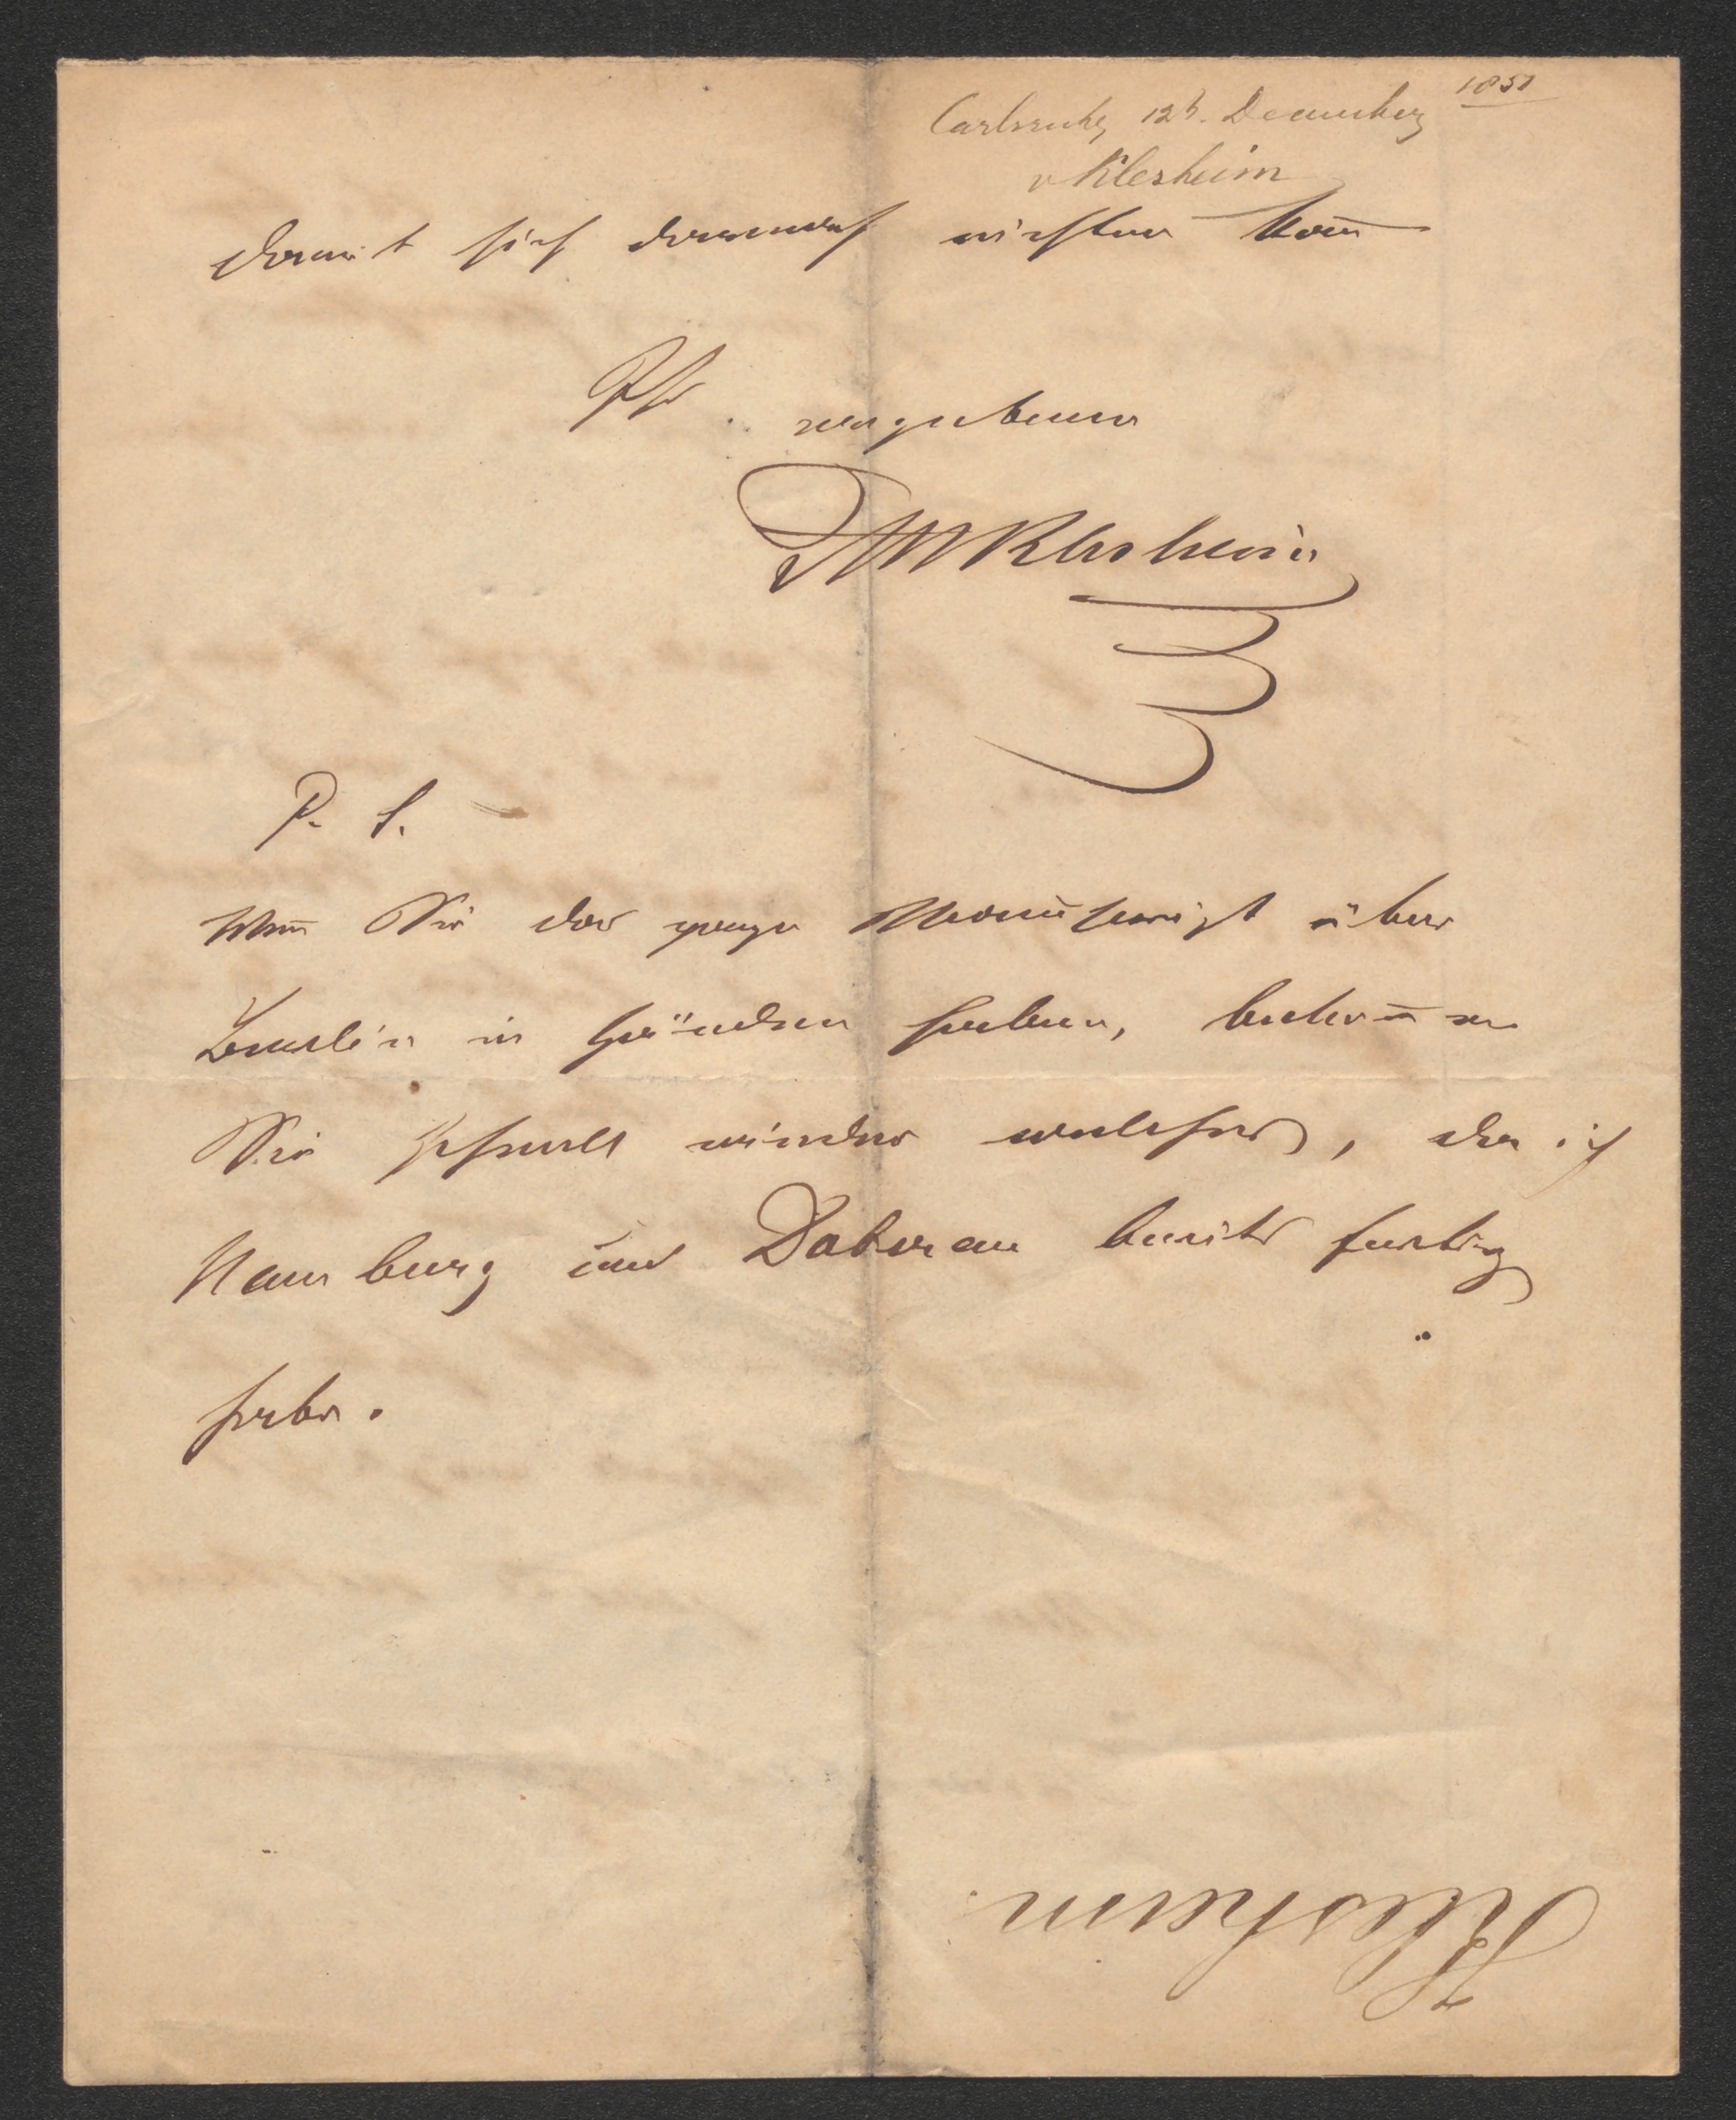 Carlsruhe, 12t. December 1851
v Klesheim
damit ich darnach richten kan̄
Ihr ergebener
Klesheim
P. S.
Wen̄ Sie das ganze Manuscript über
Berlin in Händen haben, bekom̄en
Sie schnell wieder etwas, da ich
Hamburg und Doberan bereits fertig
habe.
Klesheim.